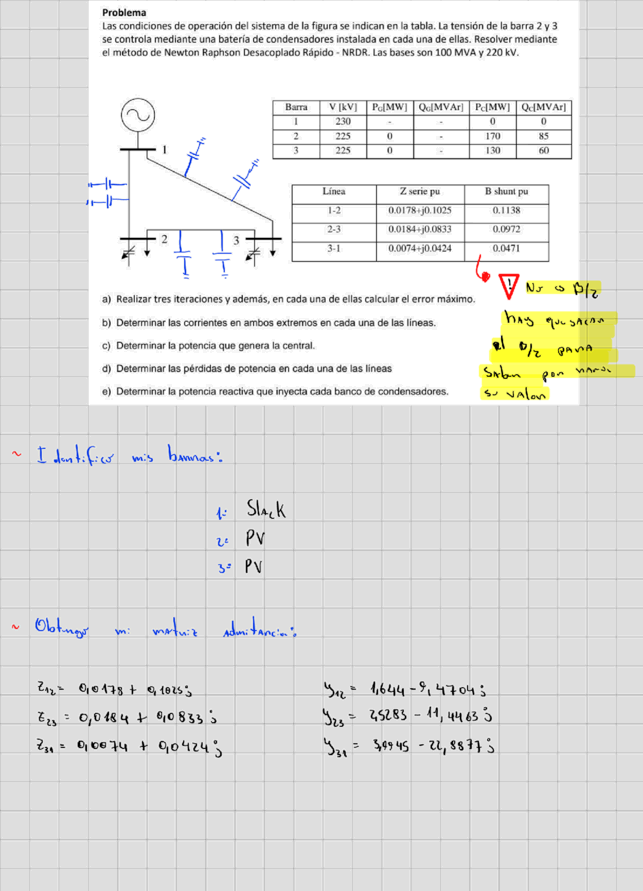 Problema
Las condiciones de operación del sistema de la figura se indican en la tabla. La tensión de la barra 2 y 3
se controla mediante una batería de condensadores instalada en cada una de ellas. Resolver mediante
el método de Newton Raphson Desacoplado Rápido - NRDR. Las bases son 100 MVA y 220 kV.
Barra V [kV] PG[MW] QG[MVAr] PC[MW] QC[MVAr]
1 230 - - 0 0
2 225 0 - 170 85
3 225 0 - 130 60
1
2 3
Línea Z serie pu B shunt pu
1-2 0.0178+j0.1025 0.1138
2-3 0.0184+j0.0833 0.0972
3-1 0.0074+j0.0424 0.0471
a) Realizar tres iteraciones y además, en cada una de ellas calcular el error máximo.
b) Determinar las corrientes en ambos extremos en cada una de las líneas.
c) Determinar la potencia que genera la central.
d) Determinar las pérdidas de potencia en cada una de las líneas
e) Determinar la potencia reactiva que inyecta cada banco de condensadores.
! No es B/2
hay que sacar
el B/2 para
saber por
su valor
~ Identifico mis barras:
1= Slack
2= PV
3= PV
~ Obtengo mi matriz admitancia:
Z12= 0,0178 + 0,1025j
Z23= 0,0184 + 0,0833j
Z31= 0,0074 + 0,0424j
y12= 1,644 - 9,4704j
y23= 2,5283 - 11,4463j
y31= 3,9945 - 22,8877j